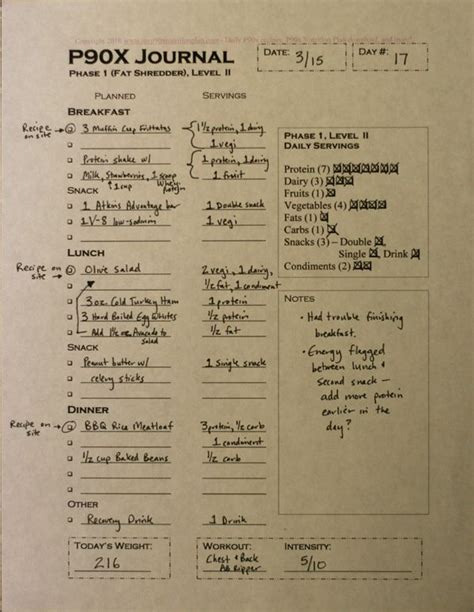 P90X JOURNAL
PHASE 1 (FAT SHREDDER), LEVEL II
DATE: 3/15
DAY #: 17
PLANNED SERVINGS
BREAKFAST
Recipe on site
3 Muffin Cup Frittatas 1 1/2 protein, 1 dairy
1 vegi
Protein shake w/ 1 protein, 1 dairy
Milk, Strawberries, 1 scoop 1 fruit
1 cup Whey Protein
SNACK
1 Atkins Advantage bar 1 Double snack
1 V-8 low-sodium 1 vegi
LUNCH
Recipe on site
Olive Salad 2 vegi, 1 dairy,
1/2 fat, 1 condiment
3 oz. Cold Turkey Ham 1 protein
3 Hard Boiled Egg Whites 1/2 protein
Add 1 1/2 oz Avocado to salad 1/2 fat
SNACK
Peanut butter w/ 1 Single snack
celery sticks
DINNER
Recipe on site
BBQ Rice Meatloaf 3 protein, 1/2 carb
1 condiment
1/2 cup Baked Beans 1/2 carb
OTHER
Recovery Drink 1 Drink
PHASE 1, LEVEL II
DAILY SERVINGS
Protein (7)
Dairy (3)
Fruits (1)
Vegetables (4)
Fats (1)
Carbs (1)
Snacks (3) – Double
Single Drink
Condiments (2)
NOTES
· Had trouble finishing
breakfast.
· Energy flagged
between lunch &
second snack –
add more protein
earlier in the
day?
TODAY'S WEIGHT:
216
WORKOUT:
Chest & Back
Ab Ripper
INTENSITY:
5/10